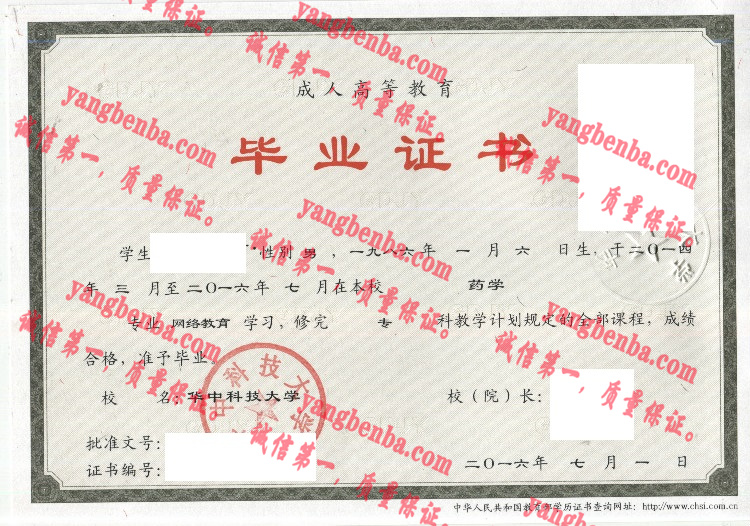 成人高等教育
毕业证书
学生 性别 男 , 一九八六年 一 月 六 日生, 于二〇一四
年 三 月至 二〇一六年 七 月在本校 药学
专业 网络教育 学习, 修完 专 科教学计划规定的全部课程, 成绩
合格, 准予毕业。
校 名: 华中科技大学 校(院)长:
批准文号:
证书编号:
二〇一六年 七 月 一 日
中华人民共和国教育部学历证书查询网址: http://www.chsi.com.cn
中科技大学
yangbenba.com
诚信第一, 质量保证。
yangbenba.com
诚信第一, 质量保证。
yangbenba.com
诚信第一, 质量保证。
yangbenba.com
诚信第一, 质量保证。
yangbenba.com
诚信第一, 质量保证。
yangbenba.com
诚信第一, 质量保证。
yangbenba.com
诚信第一, 质量保证。